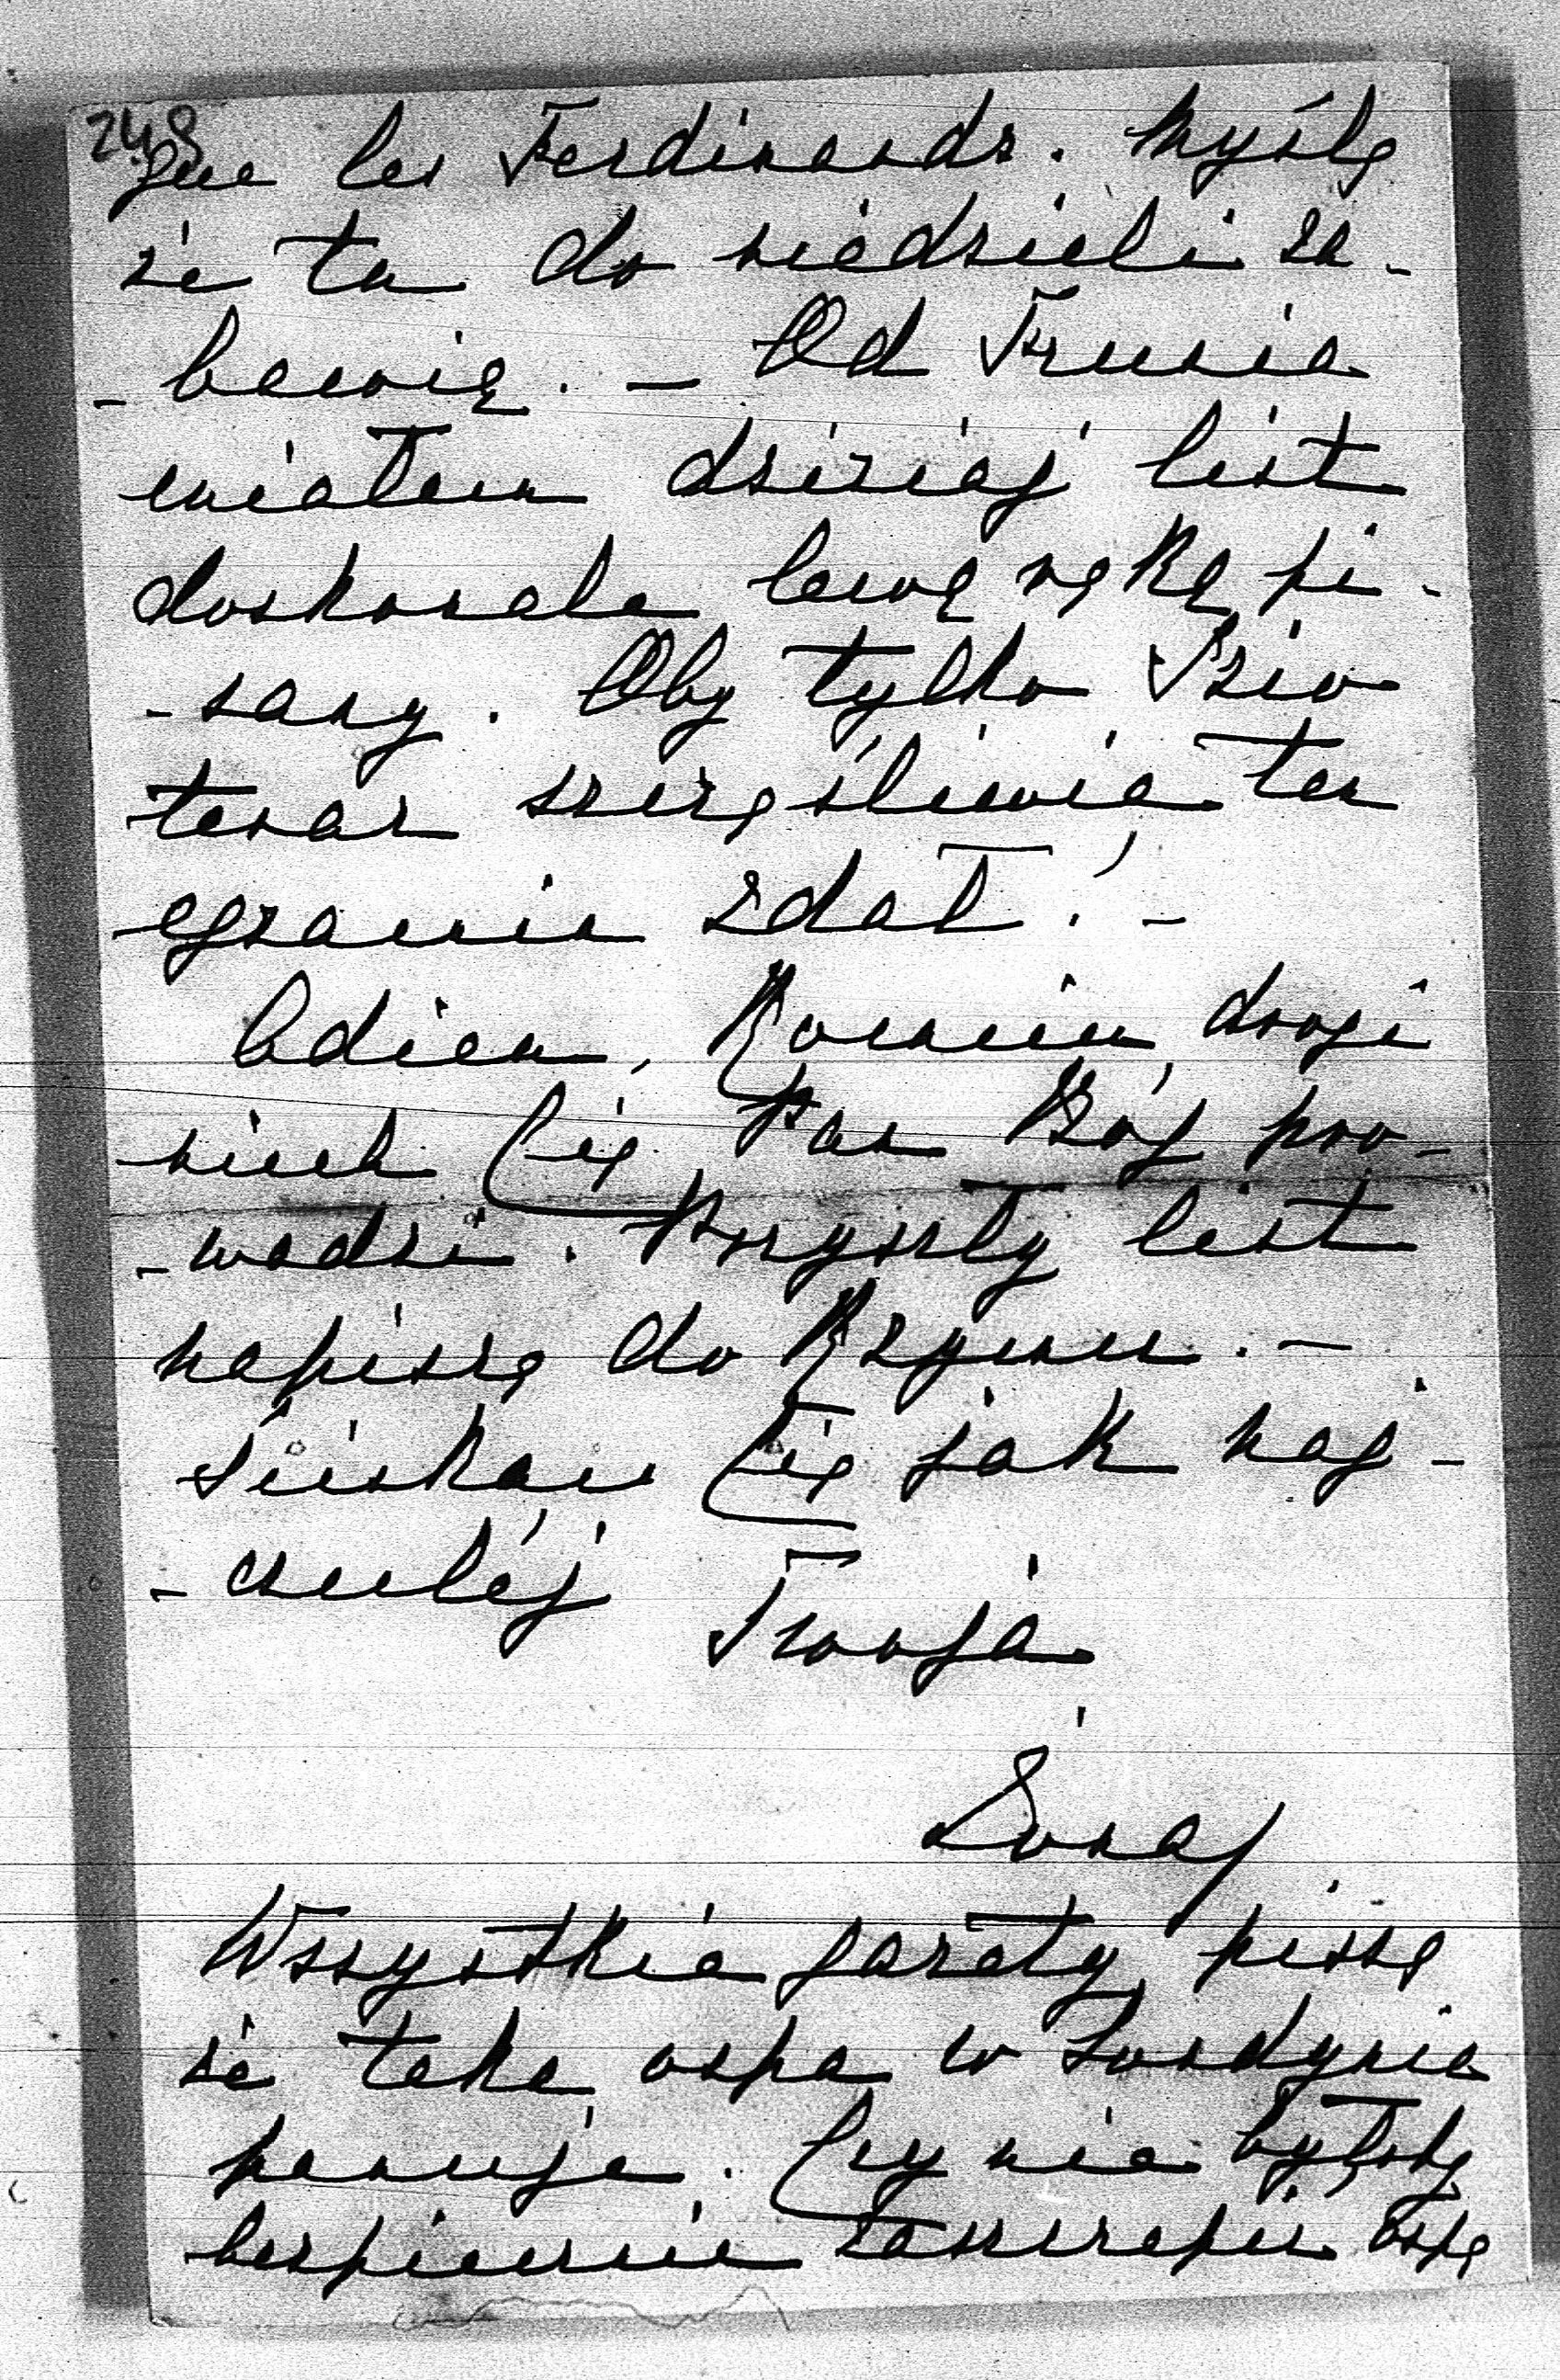 248
que les Ferdinands. Myślę
że tu do niedzieli za-
-bawię. - Od Frusia
miałem dzisiaj list
doskonale lewą ręką pi-
-sany. Oby tylko
teraz szczęśliwie ten
egzamin zdał! -
Adieu, Romciu drogi
niech Cię Pan Bóg pro-
-wadzi. Przyszły list
napiszę do Rzymu. -
Ściskam Cię jak naj-
-czulej Twoja

Wszystkie gazety piszą
że taka ospa w Londynie
panuje. Czy nie byłoby
bezpiecznie zaszczepić ospę